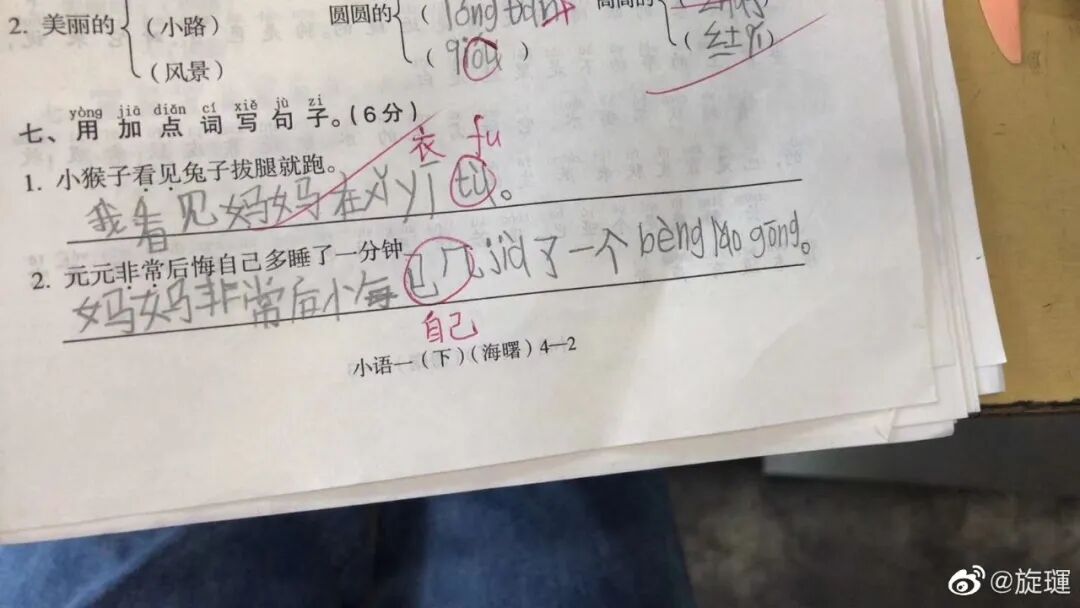 2. 美丽的 (小路) 圆圆的 (lóng
(风景) (qióu) (红
yòng jiā diǎn cí xiě jù zi
七、用加点词写句子。(6分)
衣 fu
1. 小猴子看见兔子拔腿就跑。
我看见妈妈在xǐ yī tù。
2. 元元非常后悔自己多睡了一分钟
妈妈非常后 jià了一个bèng lǎo gōng。
自己
小语一(下)(海曙)4—2
@旋瑾